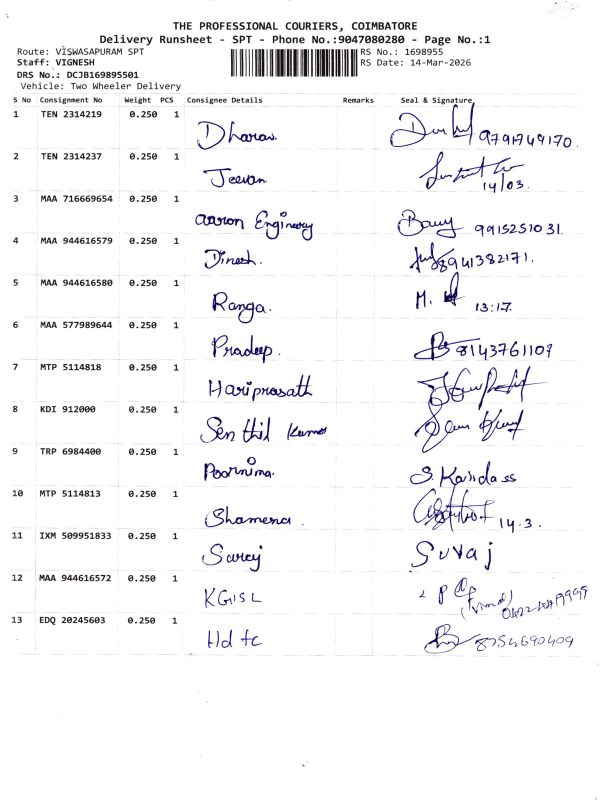 THE PROFESSIONAL COURIERS, COIMBATORE
Delivery Runsheet - SPT - Phone No.:9047080280 - Page No.:1
Route: VISWASAPURAM SPT RS No.: 1698955
Staff: VIGNESH RS Date: 14-Mar-2026
DRS No.: DCJB169895501
Vehicle: Two Wheeler Delivery
S No Consignment No Weight PCS Consignee Details Remarks Seal & Signature
1 TEN 2314219 0.250 1
Dharav 9791749170.
2 TEN 2314237 0.250 1
Jeevan 14/03.
3 MAA 716669654 0.250 1
aaron Enginery 9915251031.
4 MAA 944616579 0.250 1
Dinesh. 8941382171.
5 MAA 944616580 0.250 1
Ranga. M. 13:17.
6 MAA 577989644 0.250 1
Pradeep. 8143761107
7 MTP 5114818 0.250 1
Hariprasath
8 KDI 912000 0.250 1
Senthil Kumar
9 TRP 6984400 0.250 1
Poornima. S. Kandass
10 MTP 5114813 0.250 1
Shamena. 14.3.
11 IXM 509951833 0.250 1
Suraj Suvaj
12 MAA 944616572 0.250 1
KGISL
13 EDQ 20245603 0.250 1
Hdfc 8754690409